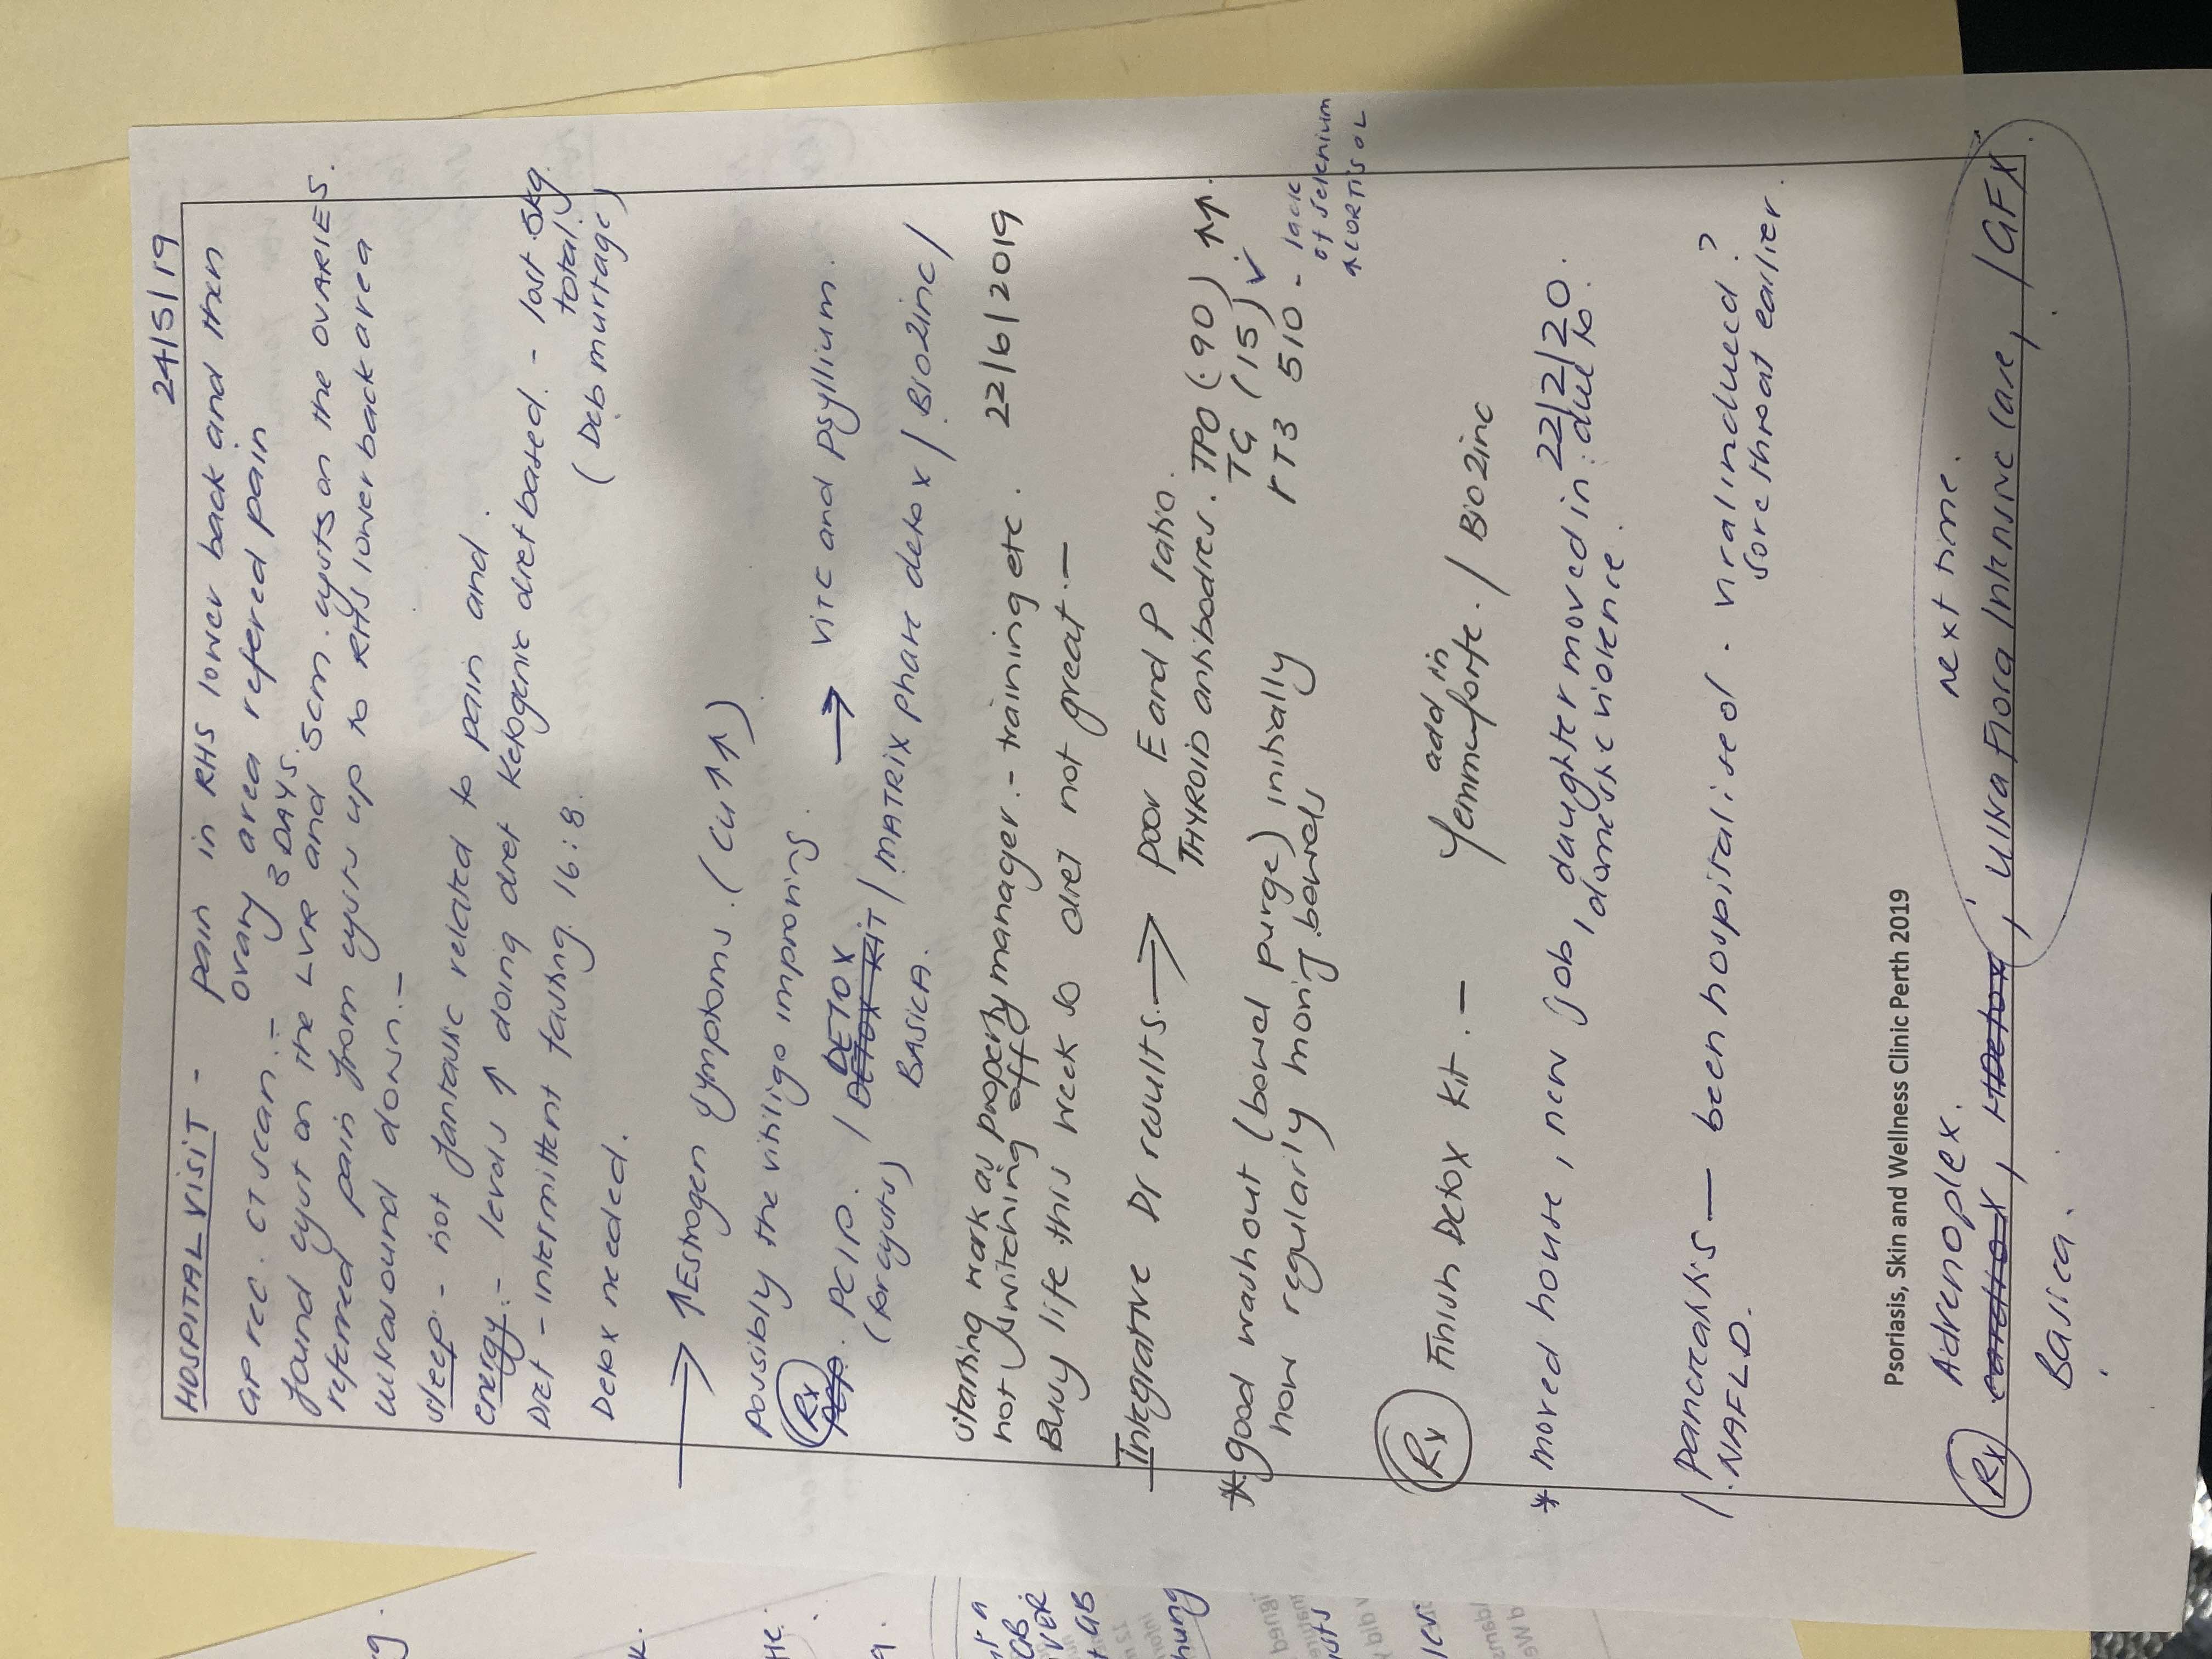 24/5/19
HOSPITAL VISIT - pain in RHS lower back and then
ovary area refered pain
GP rec. CT scan. - 3 DAYS
found cyst on the LVR and 5cm. cysts on the OVARIES.
referred pain from cysts up to RHS lower back area
ultrasound down. -
sleep - not fantastic related to pain and.
energy: - levels ↑ doing diet ketogenic diet based. - lost 5kg
total.
Diet - intermittent fasting. 16:8. (Deb murtage)
Detox needed.
→ ↑ Estrogen symptoms. (Cu ↑↑)
Possibly the vitiligo improving. → vitc and psyllium.
Rx PCIP. / DETOX / MATRIX phase detox / Biozinc /
(for cysts) BASICA.
starting work as property manager. - training etc. 22/6/2019
not switching off
Busy life this week so diet not great. -
Integrative Dr results. → poor E and P ratio.
THYROID antibodies. TPO (.90) ↑↑.
TG (15) ✓
rT3 510 - lack
of selenium
↑ CORTISOL
* good washout (bowel purge) initially
now regularly moving bowels
add in
Rx Finish Detox Kit. - Yemmuforte. / Biozinc
* moved house, new job, daughter moved in: due to 22/2/20
domestic violence.
/ Pancreatitis — been hospitalised. viral induced?
. NAFLD. sore throat earlier.
Psoriasis, Skin and Wellness Clinic Perth 2019
next time.
Adrenoplex.
Rx , HDetox, Ultra Flora Intensive Care, / GFX
Basica.